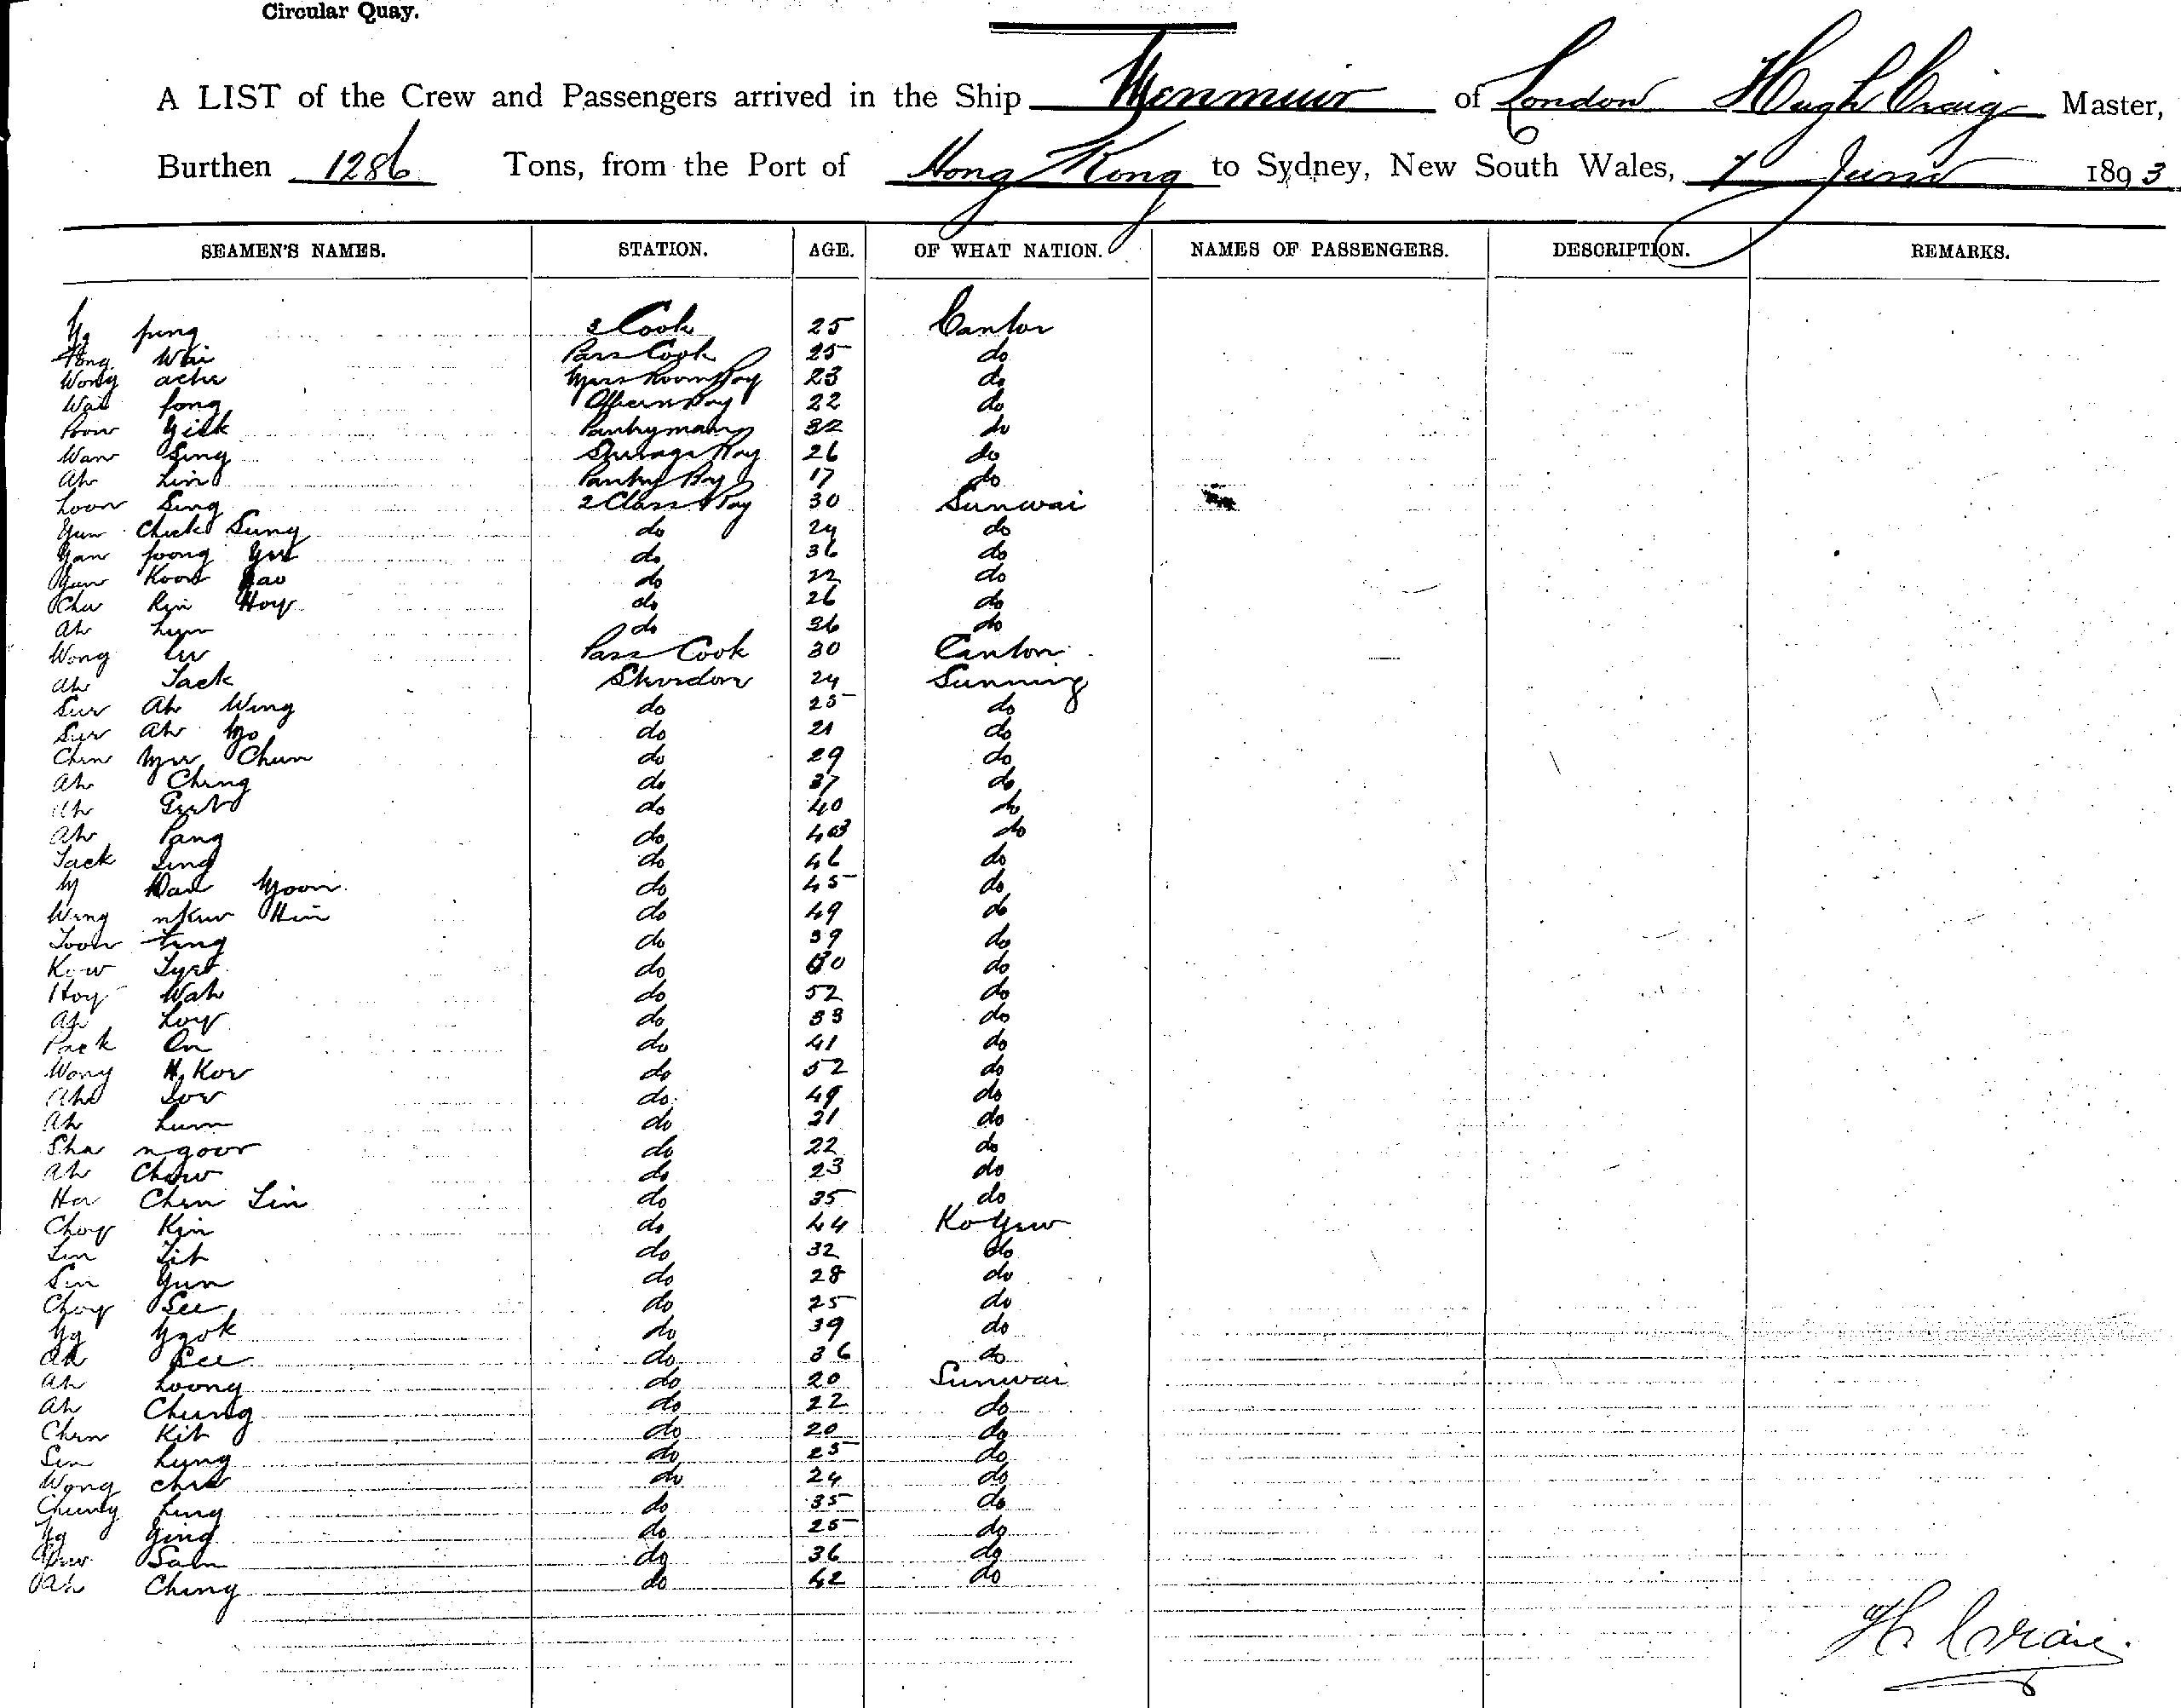 Circular Quay.
A LIST of the Crew and Passengers arrived in the Ship Menmuir of London Hugh Craig Master,
Burthen 1286 Tons, from the Port of Hong Kong to Sydney, New South Wales, 7 June 1893
SEAMEN'S NAMES. STATION. AGE. OF WHAT NATION. NAMES OF PASSENGERS. DESCRIPTION. REMARKS.
Yg fung 3 Cook 25 Canton
Fong Wai Pass Cook 25 do
Wong ache Mess Room Boy 23 do
Wai fong Officers Boy 22 do
Gick Pantryman 32 do
Wan Sing Steerage Boy 26 do
Ah Lin Pantry Boy 17 do
Loon Sing 2 Class Boy 30 Sunwai
Yun Chick Sung do 24 do
Yan foong do 36 do
Yun Koon do 22 do
Chu Kin Hoy do 26 do
Ah Lum do 36 do
Wong Pass Cook 30 Canton
Ah Jack 24 Sunning
Sur Ah Wing do 25 do
Sur Ah Yo do 21 do
Chin Chun do 29 do
Ah Ching do 37 do
Ah do 40 do
Ah Pang do do
Jack Sing do 46 do
Yoon do 45 do
Wing Hin do 49 do
Toon Ting do 39 do
Kow do do
Hoy Wah do 52 do
Ah Loy do 33 do
Pack On do 41 do
Wong do 52 do
Ah Sow do 49 do
Ah Lum do 21 do
Sha ngoor do 22 do
Ah Chow do 23 do
Ha Chin Lin do 35 do
Choy Kin do 44 Ko Yew
Lin Tit do 32 do
Sin Yun do 28 do
Choy See do 25 do
Yg do 39 do
Ah See do 36 do
Ah Loong do 20 Sunwai
Ah Chung do 22 do
Chin Kit do 20 do
Sin Lung do 25 do
Wong do 24 do
Cheung Ling do 35 do
Yg Ging do 25 do
Sam do 36 do
Ah Ching do 42 do
H Craig.